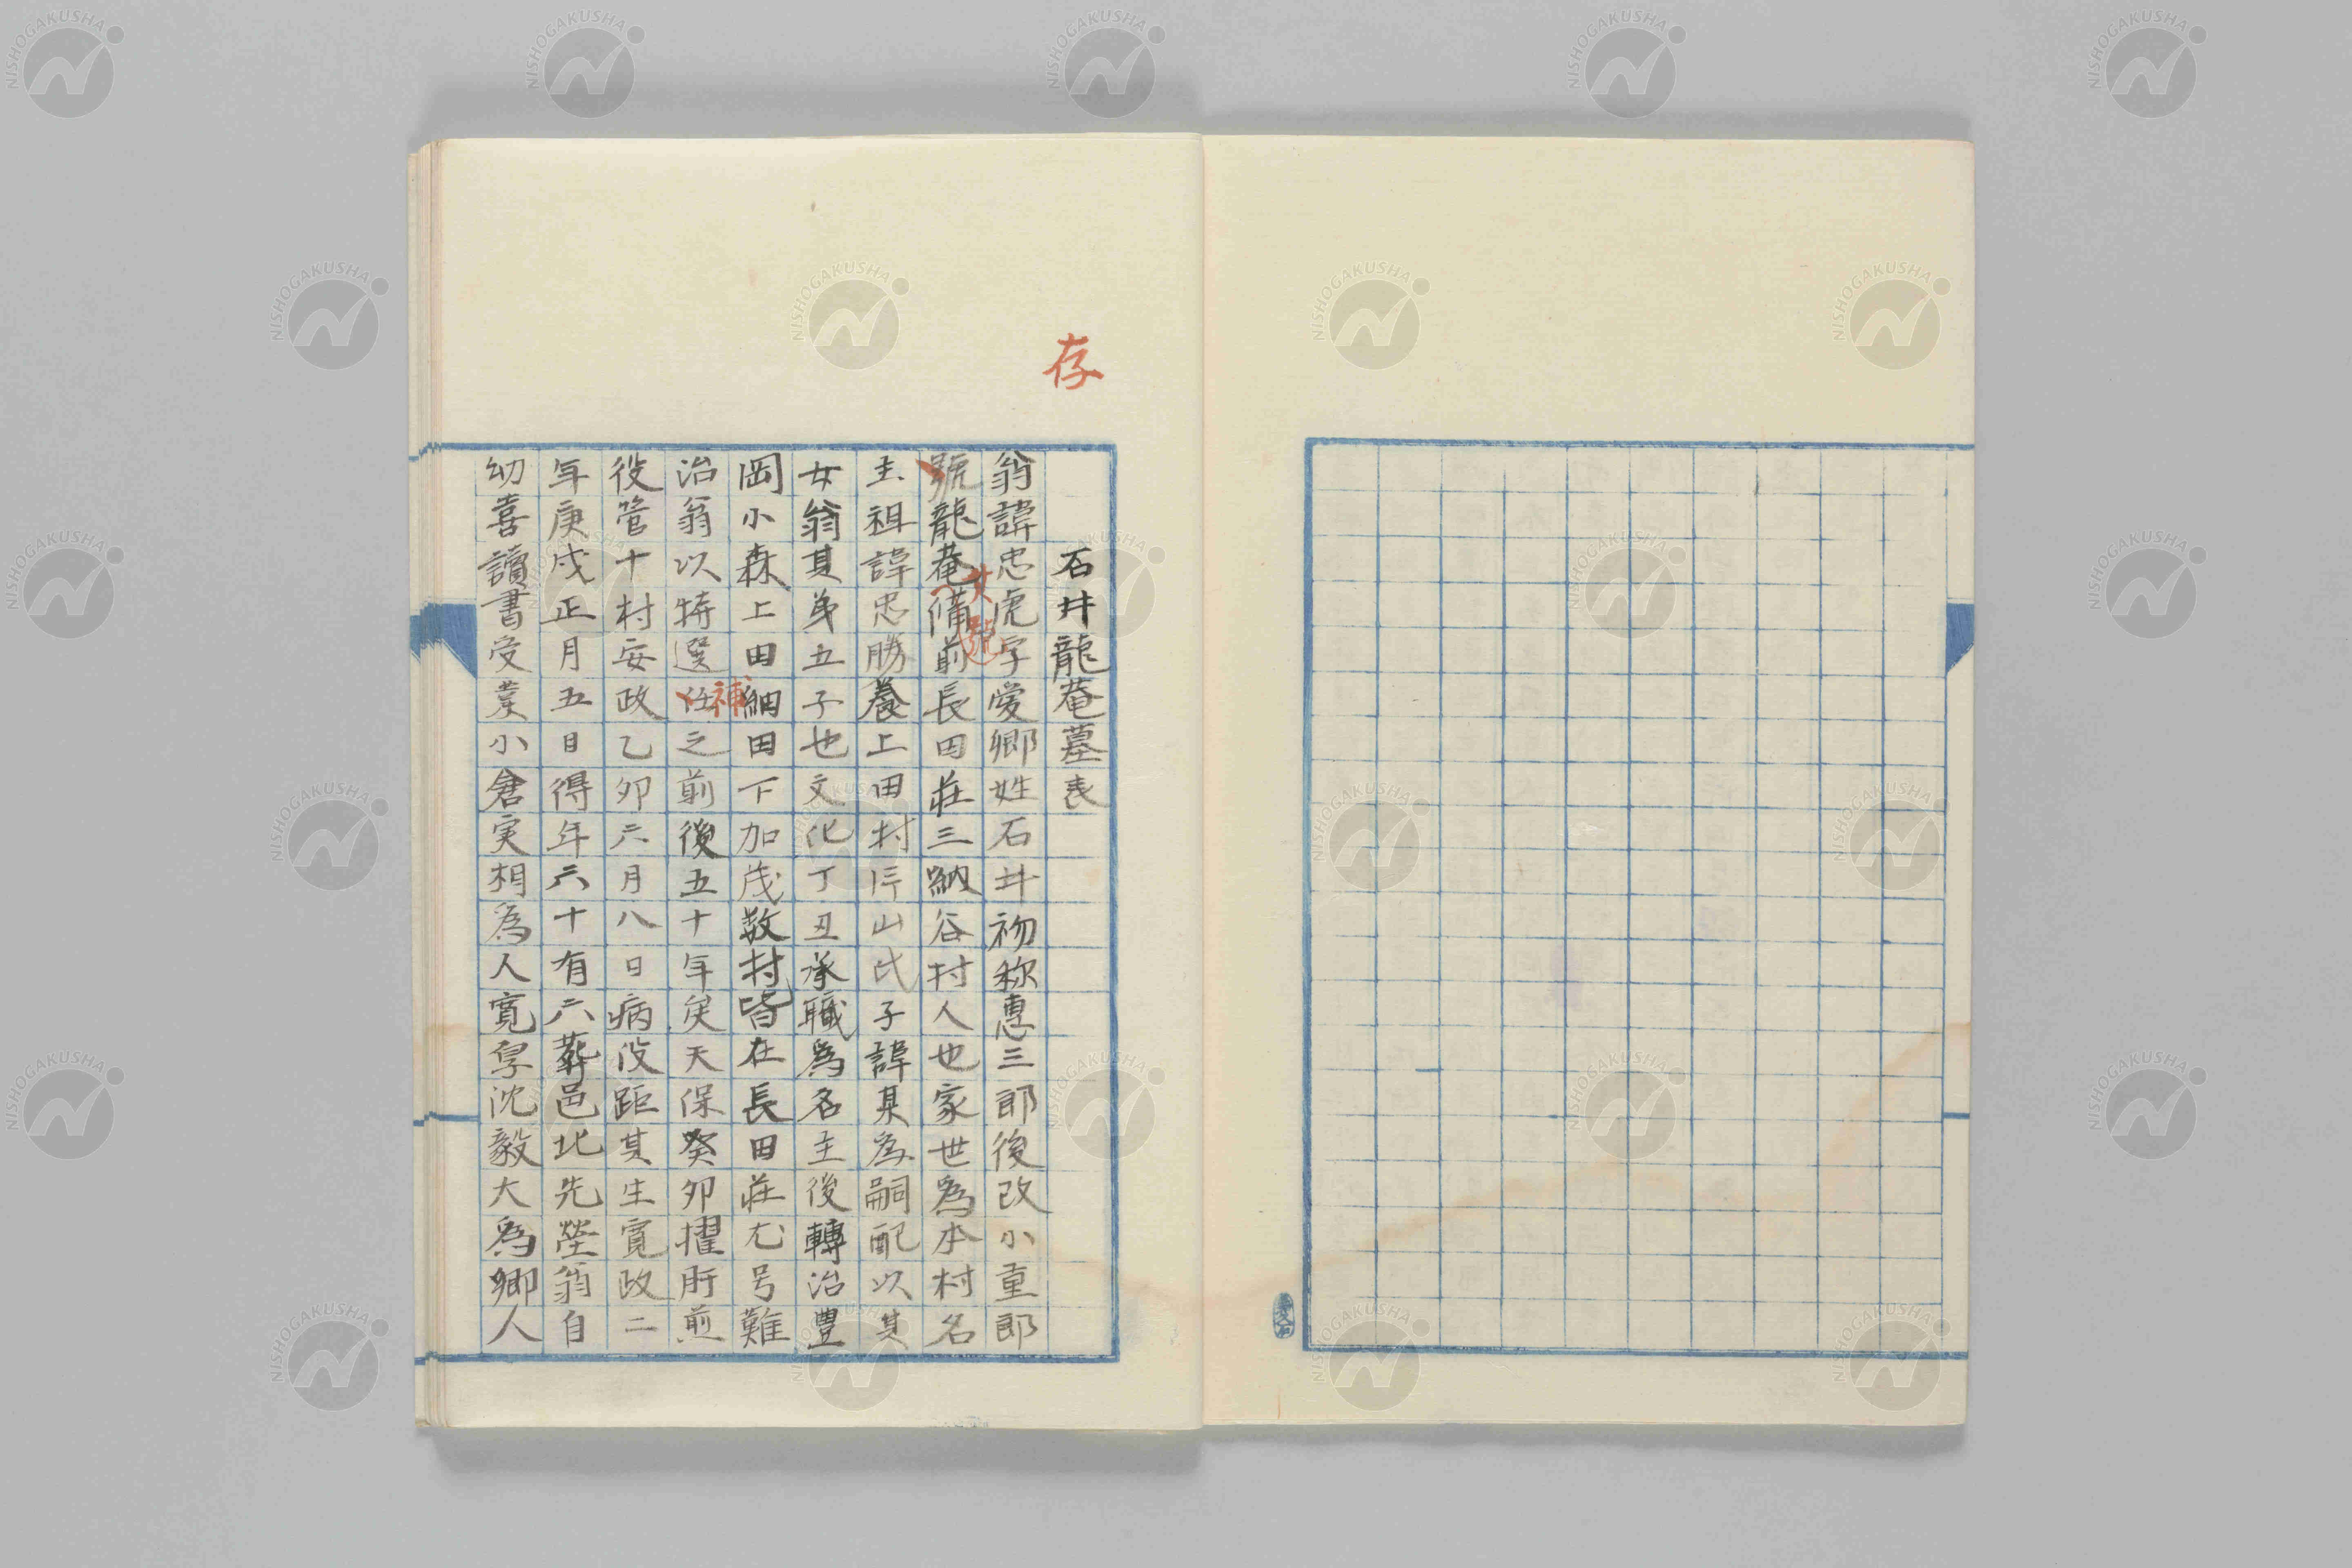 存
石井龍菴墓表
翁諱忠虎字愛卿姓石井初称惠三郎後改小重郎
號龍菴備前長田莊三納谷村人也家世為本村名
其號
主祖諱忠勝養上田村片山氏子諱某為嗣配以其
女翁其弟五子也文化丁丑承職為名主後轉治豊
岡小森上田細田下加茂数村皆在長田莊尤号難
治翁以特選任之前後五十年矣天保癸卯擢肝煎
補
役管十村安政乙卯六月八日病没距其生寛政二
年庚戌正月五日得年六十有六葬邑北先塋翁自
幼喜讀書受業小倉実相為人寛厚沈毅大為鄉人
NISHOGAKUSHA